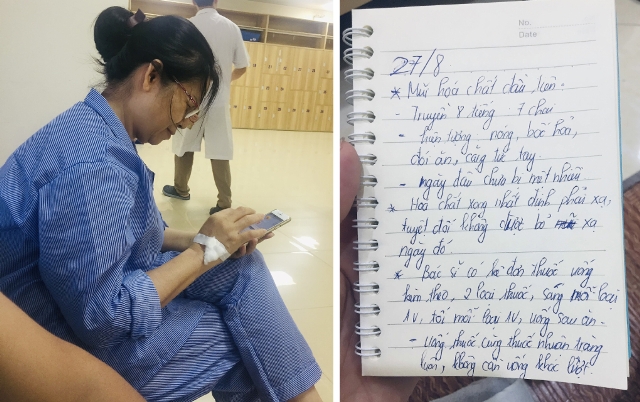 No.
Date
27/8
* Mũi hóa chất đầu tiên.
- Truyền 8 tiếng 7 chai
- hiện tượng: nóng, bốc hỏa,
đói ăn, căng tức tay.
- ngày đầu chưa bị mệt nhiều
* Hóa chất xong nhất định phải xạ,
tuyệt đối không được bỏ xạ
ngày đó.
* Bác sĩ có kê đơn thuốc uống
kèm theo, 2 loại thuốc, sáng mỗi loại
1v, tối mỗi loại 1v, uống sau ăn.
- uống thuốc cùng thuốc nhuận tràng
luôn, không cần uống khác lượt.